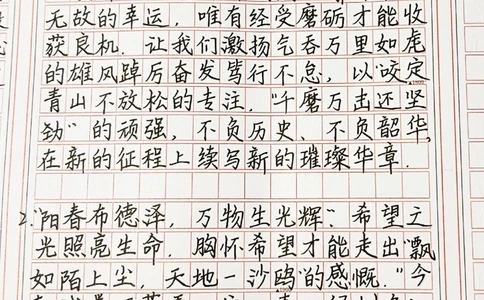 无故的幸运，唯有经受磨砺才能收
获良机．让我们激扬气吞万里如虎
的雄风踔厉奋发笃行不怠，以"咬定
青山不放松的专注，"千磨万击还坚
劲"的顽强，不负历史、不负韶华，
在新的征程上续写新的璀璨华章．
2."阳春布德泽，万物生光辉"．希望之
光照亮生命．胸怀希望才能走出"飘
如陌上尘，天地一沙鸥"的感慨．"今